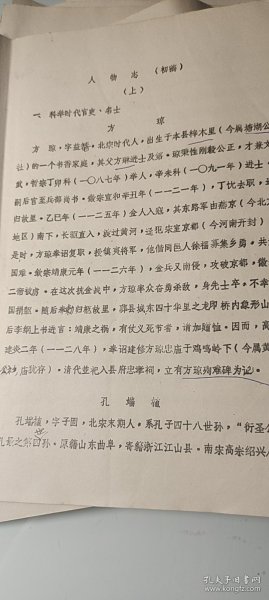 人 物 志 (初稿)
(上)
一、科举时代官吏、名士
方 琼
方琼，字益 ，北宋时代人，出生于本县梓木里（今属塘湖公
社）的一个书香家庭，其父方 进士及 。琼秉性刚毅公正，才兼文
武，哲宗丁卯科（一〇八七年）举人，辛未科（一〇九一年）进士，
嗣后官至兵部尚书。徽宗宣和辛丑年（一一二一年），丁忧去职，
归故里。乙巳年（一一二五年）金人入寇，其东路军由燕京（今北方
地区）南下，长驱直入，渡过黄河，迳犯宋室京都（今河南开封）
是时，方琼奉诏复职，授镇 将军，他偕同邑人徐福 募集乡勇，共
国难。钦宗靖康元年（一一二六年），金兵又南侵，攻破京都，徽
二帝被虏。在这次抗金战中，方琼率众奋勇杀敌，身先士卒，不幸
国捐躯。随后奉 归葬故里，墓县城东四十华里之龙 桥内象形山
后李纲上书进言：靖康之祸，有仗义死节者，请加赠恤。因而，高
建炎二年（一一二八年），奉诏建修方琼忠庙于鸡鸣岭下（今属黄
庙犹存）。清代並祀入县府忠孝祠，立有方琼殉难碑为记。
孔 端
孔端 ，字子固，北宋末期人，系孔子四十八世孙，“衍圣公
孔 之第四孙。原籍山东曲阜，寄籍浙江江山县。南宋高宗绍兴
孔夫子旧书网
book.kongfz.com